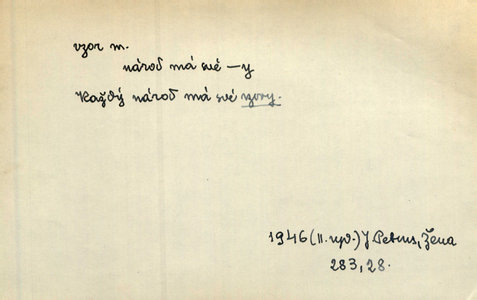 vzor m.
národ má své —y
Každý národ má své vzory.
1946 (II. vyd.) J Petrus, Žena
283, 28.